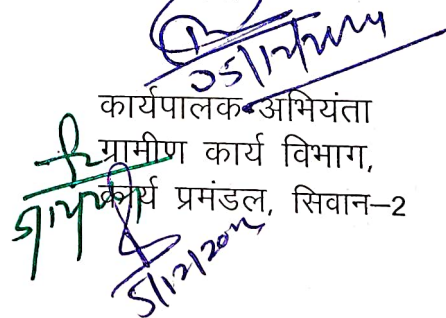 05/12/2024
कार्यपालक अभियंता
ग्रामीण कार्य विभाग,
कार्य प्रमंडल, सिवान–2